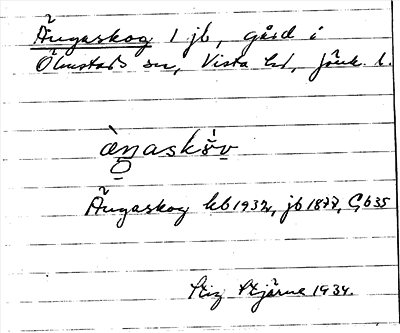 Ängaskog 1 jb, gård i
Ölmstads sn, Vista hd, Jönk. l.
Ängaskog kb 1932, jb 1877, Gb 35
Stig Stjärne 1934.